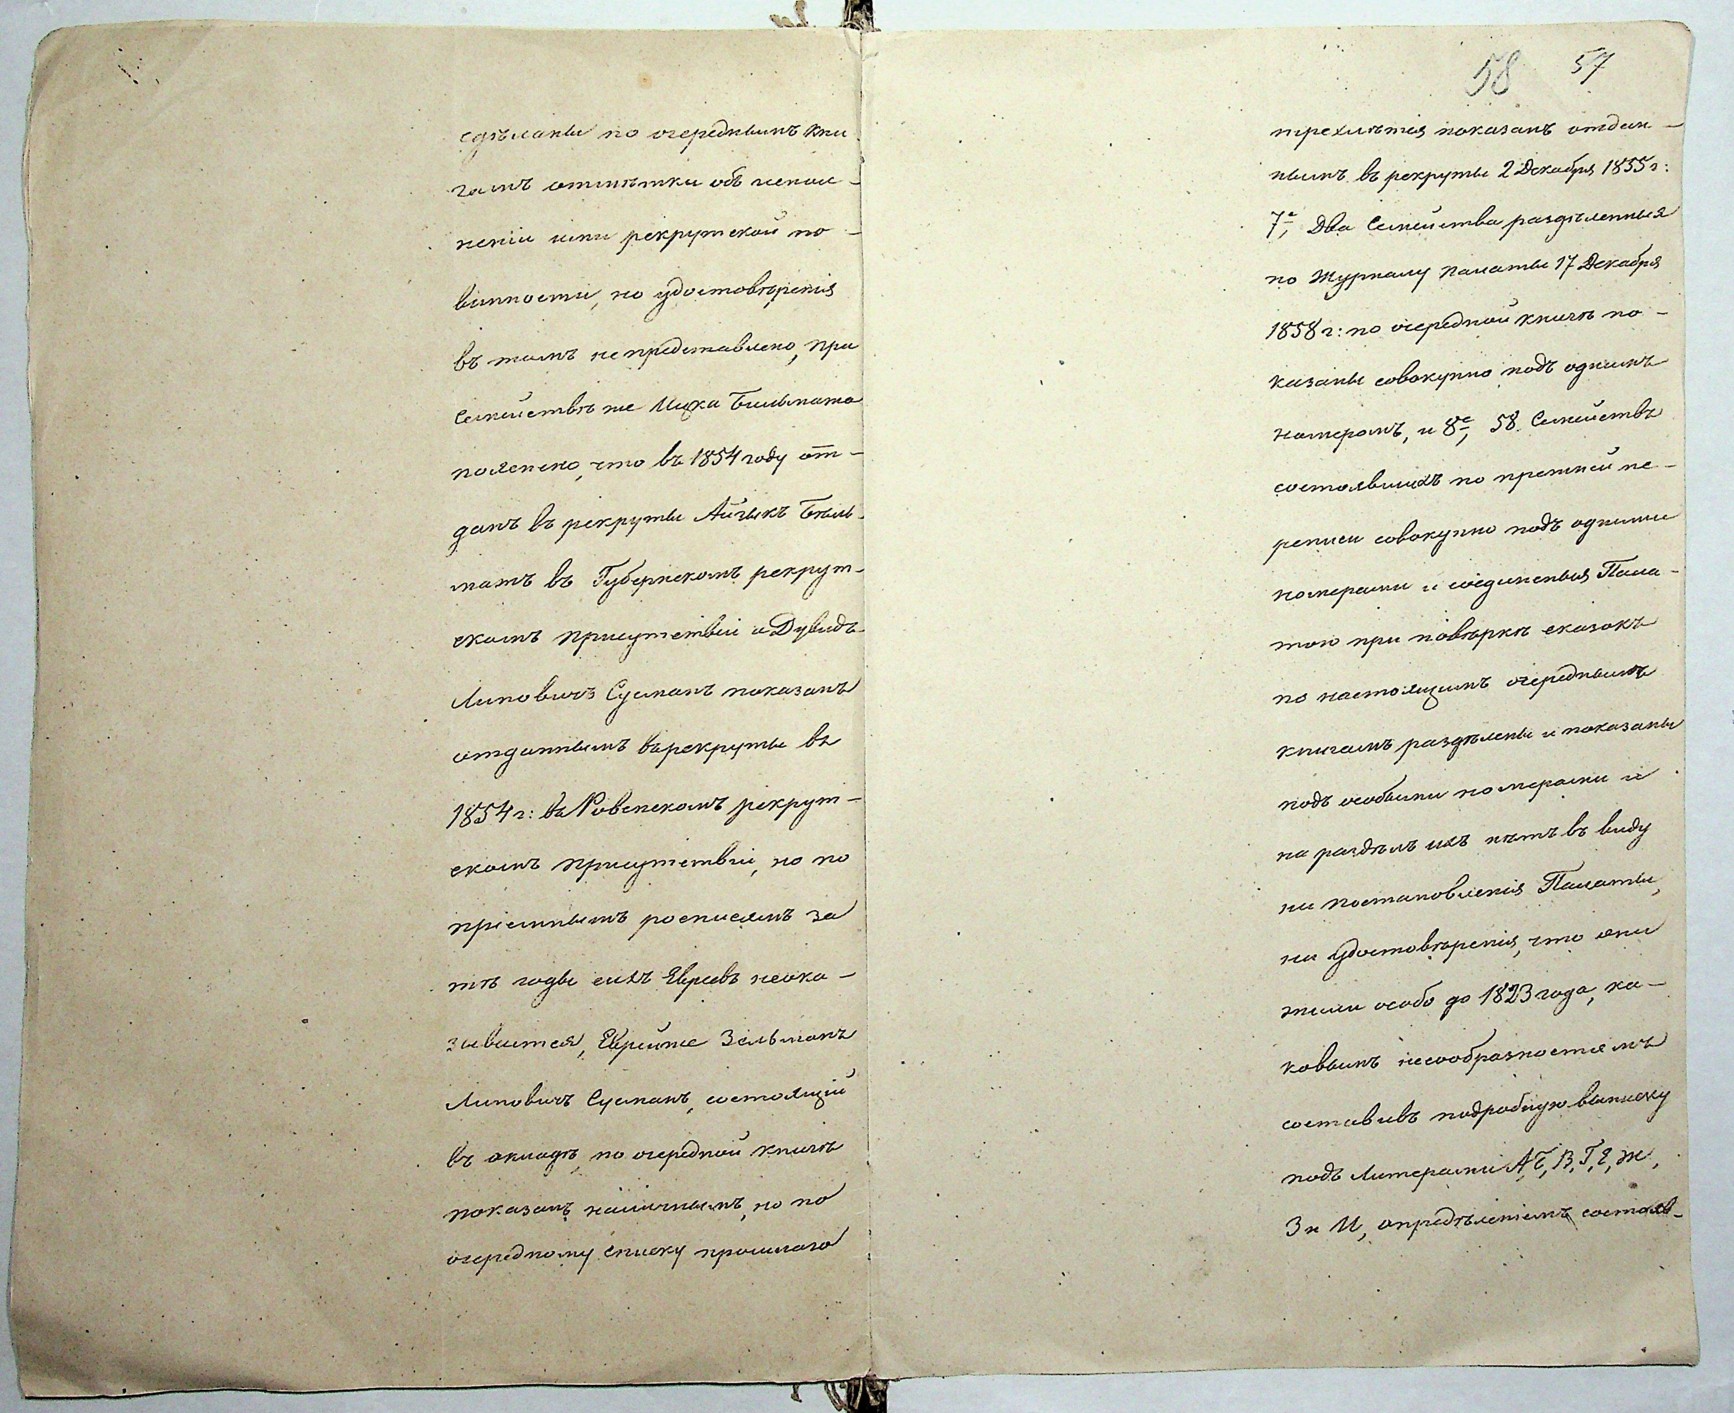 сдѣланы по очереднымъ кни
гамъ отмѣтки объ испол-
неніи ими рекрутской по-
винности, но удостовѣренія
въ томъ не представлено, при
Семействѣ же Ицка Бильмата
пояснено, что въ 1854 году от-
данъ въ рекруты Айзыкъ Биль-
матъ въ Губернскомъ рекрут-
скомъ присутствіи а Дувидъ
Липовичъ Сусманъ показанъ
отданнымъ въ рекруты въ
1854 г: въ Ровенскомъ рекрут-
скомъ присутствіи, но по
пріемнымъ росписямъ за
тѣ годы сихъ Евреевъ неока-
зывается, Еврей же Зельманъ
Липовичъ Сусманъ, состоящій
въ окладѣ, по очередной книгѣ
показанъ наличнымъ, но по
очередному списку прошлаго
58 57
трехлѣтія показанъ отдан-
нымъ въ рекруты 2 Декабря 1855 г:
7е, Два Семейства раздѣленныя
по Журналу Палаты 17 Декабря
1858 г: по очередной книгѣ по-
казаны совокупно подъ однимъ
номеромъ, и 8е, 58. Семействъ
состоявшихъ по прежней пе-
реписи совокупно подъ одними
номерами и соединенныя Пала-
тою при повѣркѣ сказокъ
по настоящимъ очереднымъ
книгамъ раздѣлены и показаны
подъ особыми номерами и
на раздѣлъ ихъ нѣтъ въ виду
ни постановленія Палаты,
ни удостовѣренія, что они
жили особо до 1823 года, ка-
ковымъ несообразностямъ
составивъ подробную выписку
подъ Литерами А, Б, В, Г, Е, Ж,
З и И, опредѣленіемъ состояв-